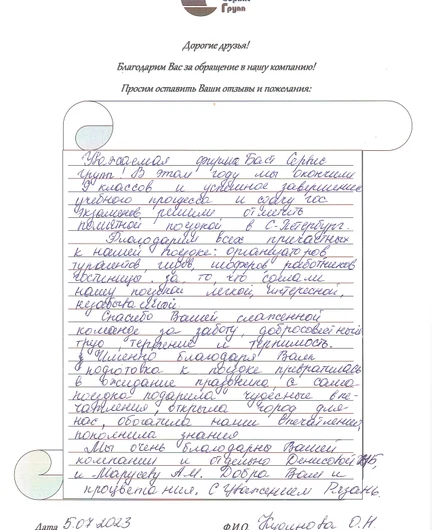 Групп
Дорогие друзья!
Благодарим Вас за обращение в нашу компанию!
Просим оставить Ваши отзывы и пожелания:
Уважаемая фирма Баст Сервис
Групп! В этом году мы окончили
9 классов и успешное завершение
учебного процесса и сдачу гос
экзаменов решили отметить
памятной поездкой в С-Петербург.
Благодарим всех причастных
к нашей поездке: организаторов,
турагентов, гидов, шоферов, работников
гостиницы за то, что сделали
нашу поездку легкой, интересной,
незабываемой
Спасибо Вашей слаженной
команде за заботу, добросовестный
труд, терпение и терпимость.
Именно благодаря Вам
подготовка к поездке превратилась
в ожидание праздника, а сама
поездка подарила чудесные впе-
чатления, открыла город для
нас, обогатила наши впечатления,
пополнила знания
Мы очень благодарны Вашей
компании и отдельно Денисовой
и Марусеву А.М. Добра Вам и
процветания. С Уважением Рязань.
Дата 5.07.2023 Ф.И.О. О.Н.